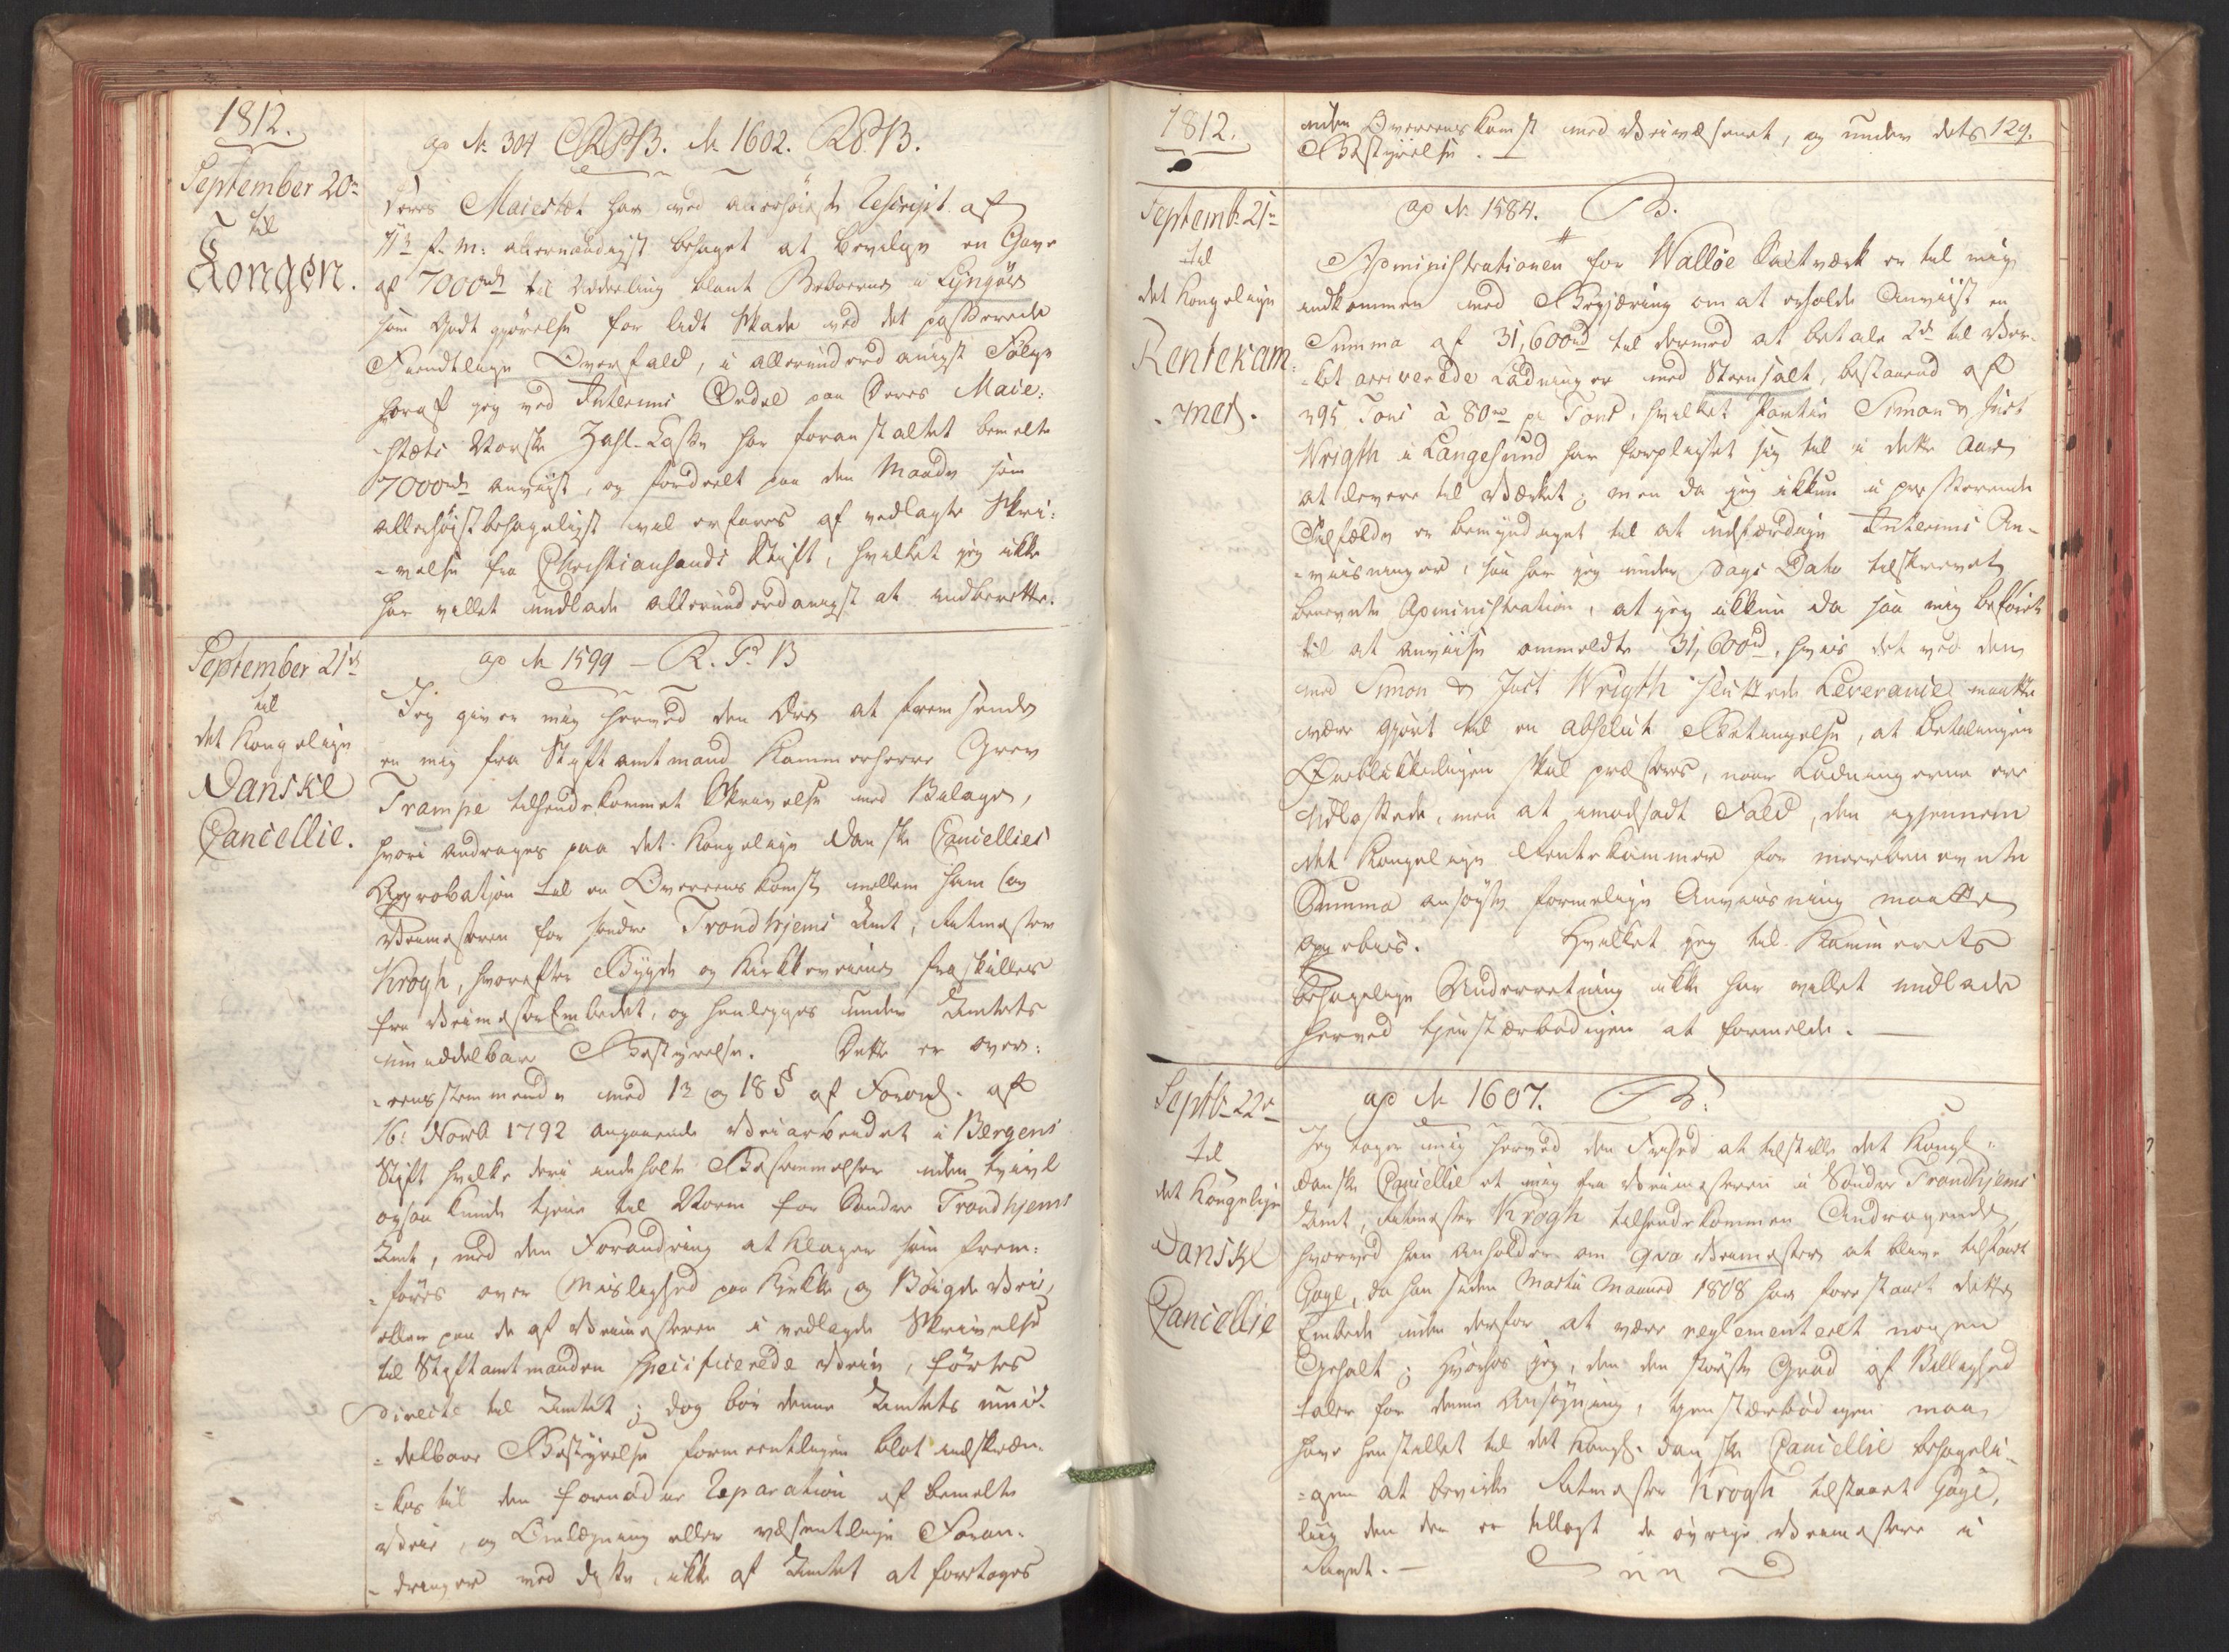 1812.
September 20de
til
Kongen.
ap No 304 CRPB. No 1602. RPB.
Deres Maiestæt har ved allerhøieste Rescript af
11te f. M: allernaadigst behaget at bevilge en Gave
af 7000rd til Uddeeling blant Beboerne i Lyngöer
som Godtgjørelse for lidt Skade ved det passerede
Fiendtlige Overfald, i allerunderdanigst Følge
heraf jeg ved Interims Ordre paa Deres Maie-
stæts Norske Zahl-Casse har foranstaltet bemelte
7000rd anviist, og fordeelt paa den Maade som
allerhøistbehageligst vil erfares af vedlagte Skri-
velse fra Christiansands Stift, hvilket jeg ikke
har villet undlade allerunderdanigst at indberette.
September 21de
til
det Kongelige
Danske
Cancellie.
ap No 1599 - R. P. B
Jeg giver mig herved den Ære at fremsende
en mig fra Stiftamtmand Kammerherre Grev
Trampe tilhændekommet Skrivelse med Bilage,
hvori andrages paa det Kongelige Danske Cancellies
Approbation til en Overeenskomst mellem ham og
Veimesteren for søndre Trondhjems Amt, Ritmester
Krogh, hvorefter Bygde og Kirkeveiene fraskilles
fra VeimesterEmbedet, og henlægges under Amtets
umiddelbare Bestyrelse. Dette er over-
eensstemmende med 13 og 18 § af Forord. af
16: Novb 1792 angaaende Veiarbeidet i Bergens
Stift hvilke deri indeholte Bestemmelser uden tvivl
ogsaa kunde tjene til Norm for Søndre Trondhjems
Amt, med den Forandring at Klager som frem-
føres over Mislighed paa Kirke, og Böigde Veie,
eller paa de af Veimesteren i vedlagde Skrivelse
til Stiftamtmanden specificerede Veie, førtes
directe til Amtet; dog bör denne Amtets umid-
delbare Bestyrelse formeentligen blot indskræn-
kes til den fornødne Reparation af bemelte
Veie, og Omlægning eller væsentlige Foran-
dringer ved disse, ikke af Amtet at foretages
1812.
uden Overeenskomst med Veivæsenet, og under dets
Bestyrelse.
129.
Septemb. 21de
til
det Kongelige
Rentekam-
mer.
ap No 1584. B.
Administrationen for Walløe Saltværk er til mig
indkommen med Begjæring om at erholde Anviist en
Summa af 31,600rd til dermed at betale 2de til Vær-
ket arriverede Ladninger med Steensalt, bestaaend af
395 Tons à 80rd pr Tons, hvilket Partie Simon & Just
Wrigth i Langesund har forpligtet sig til i dette Aar
at levere til Værket; men da jeg ikkun i presserende
Tilfælde er bemyndiget til at udfærdige Interims An-
viisninger, saa har jeg under Dags Dato tilskrevet
benevnte Administration, at jeg ikkun da saae mig beføiet
til at anviise ommeldte 31,600rd, hvis det ved den
med Simon & Just Wrigth sluttede Leverance maatte
være gjort til en absolut Betingelse, at Betalingen
Öieblikkeligen skal præsteres, naar Ladningerne ere
udlossede, men at i modsadt Fald, den igjennem
det Kongelige Rentekammer for meerbenevnte
Summa ansøgte formelige Anviisning maatte
oppebies. Hvilket jeg til Kammerets
behagelige Underretning ikke har villet undlade
herved tjenstærbødigen at formelde.
Septb. 22de
til
det Kongelige
Danske
Cancellie
ap No 1607. B.
Jeg tager mig herved den Frihed at tilstille det Kongl.
danske Cancellie et mig fra Veimesteren i Søndre Trondhjems
Amt, Ritmester Krogh tilhændekommen Andragende,
hvorved han anholder om qva Veimester at blive tilstaaet
Gage, da han siden Martii Maaned 1808 har forestaaet dette
Embede uden derfor at være reglementeret nogen
Gehalt; hvorhos jeg, den den største Grad af Billighed
taler for denne Ansøgning, tjenstærbødigen maa
have henstillet til det Kongl. danske Cancellie behageli-
gen at bevirke Ritmester Krogh tilstaaet Gage,
liig den der er tillagt de øvrige Veimestere i
Riget.